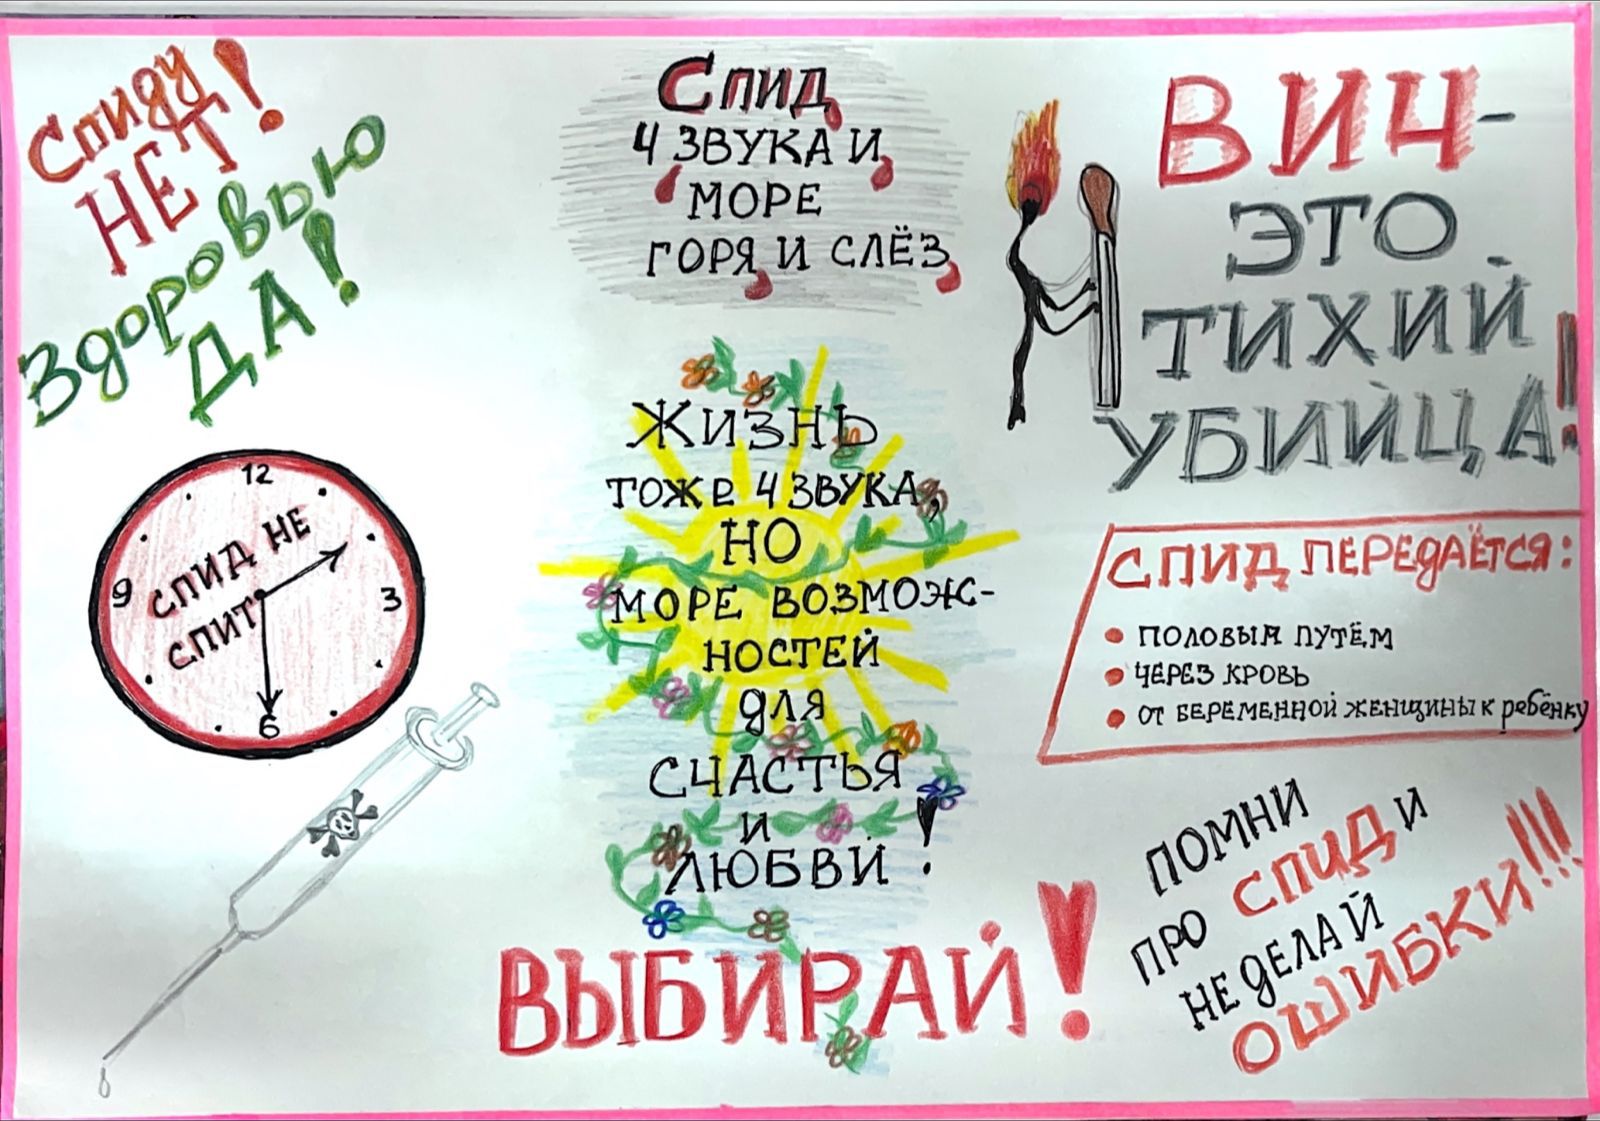 Спиду
НЕТ!
Здоровью
ДА!
СПИД
4 ЗВУКА И
МОРЕ
ГОРЯ И СЛЁЗ
ВИЧ-
ЭТО
ТИХИЙ
УБИЙЦА!
12
9
3
6
СПИД НЕ
СПИТ
ЖИЗНЬ
ТОЖЕ 4 ЗВУКА,
НО
МОРЕ ВОЗМОЖ-
НОСТЕЙ
ДЛЯ
СЧАСТЬЯ
И
ЛЮБВИ!
ВЫБИРАЙ!
СПИД ПЕРЕДАЁТСЯ:
• ПОЛОВЫМ ПУТЁМ
• ЧЕРЕЗ КРОВЬ
• ОТ БЕРЕМЕННОЙ ЖЕНЩИНЫ К РЕБЁНКУ
ПОМНИ
ПРО СПИД И
НЕ ДЕЛАЙ
ОШИБКИ!!!